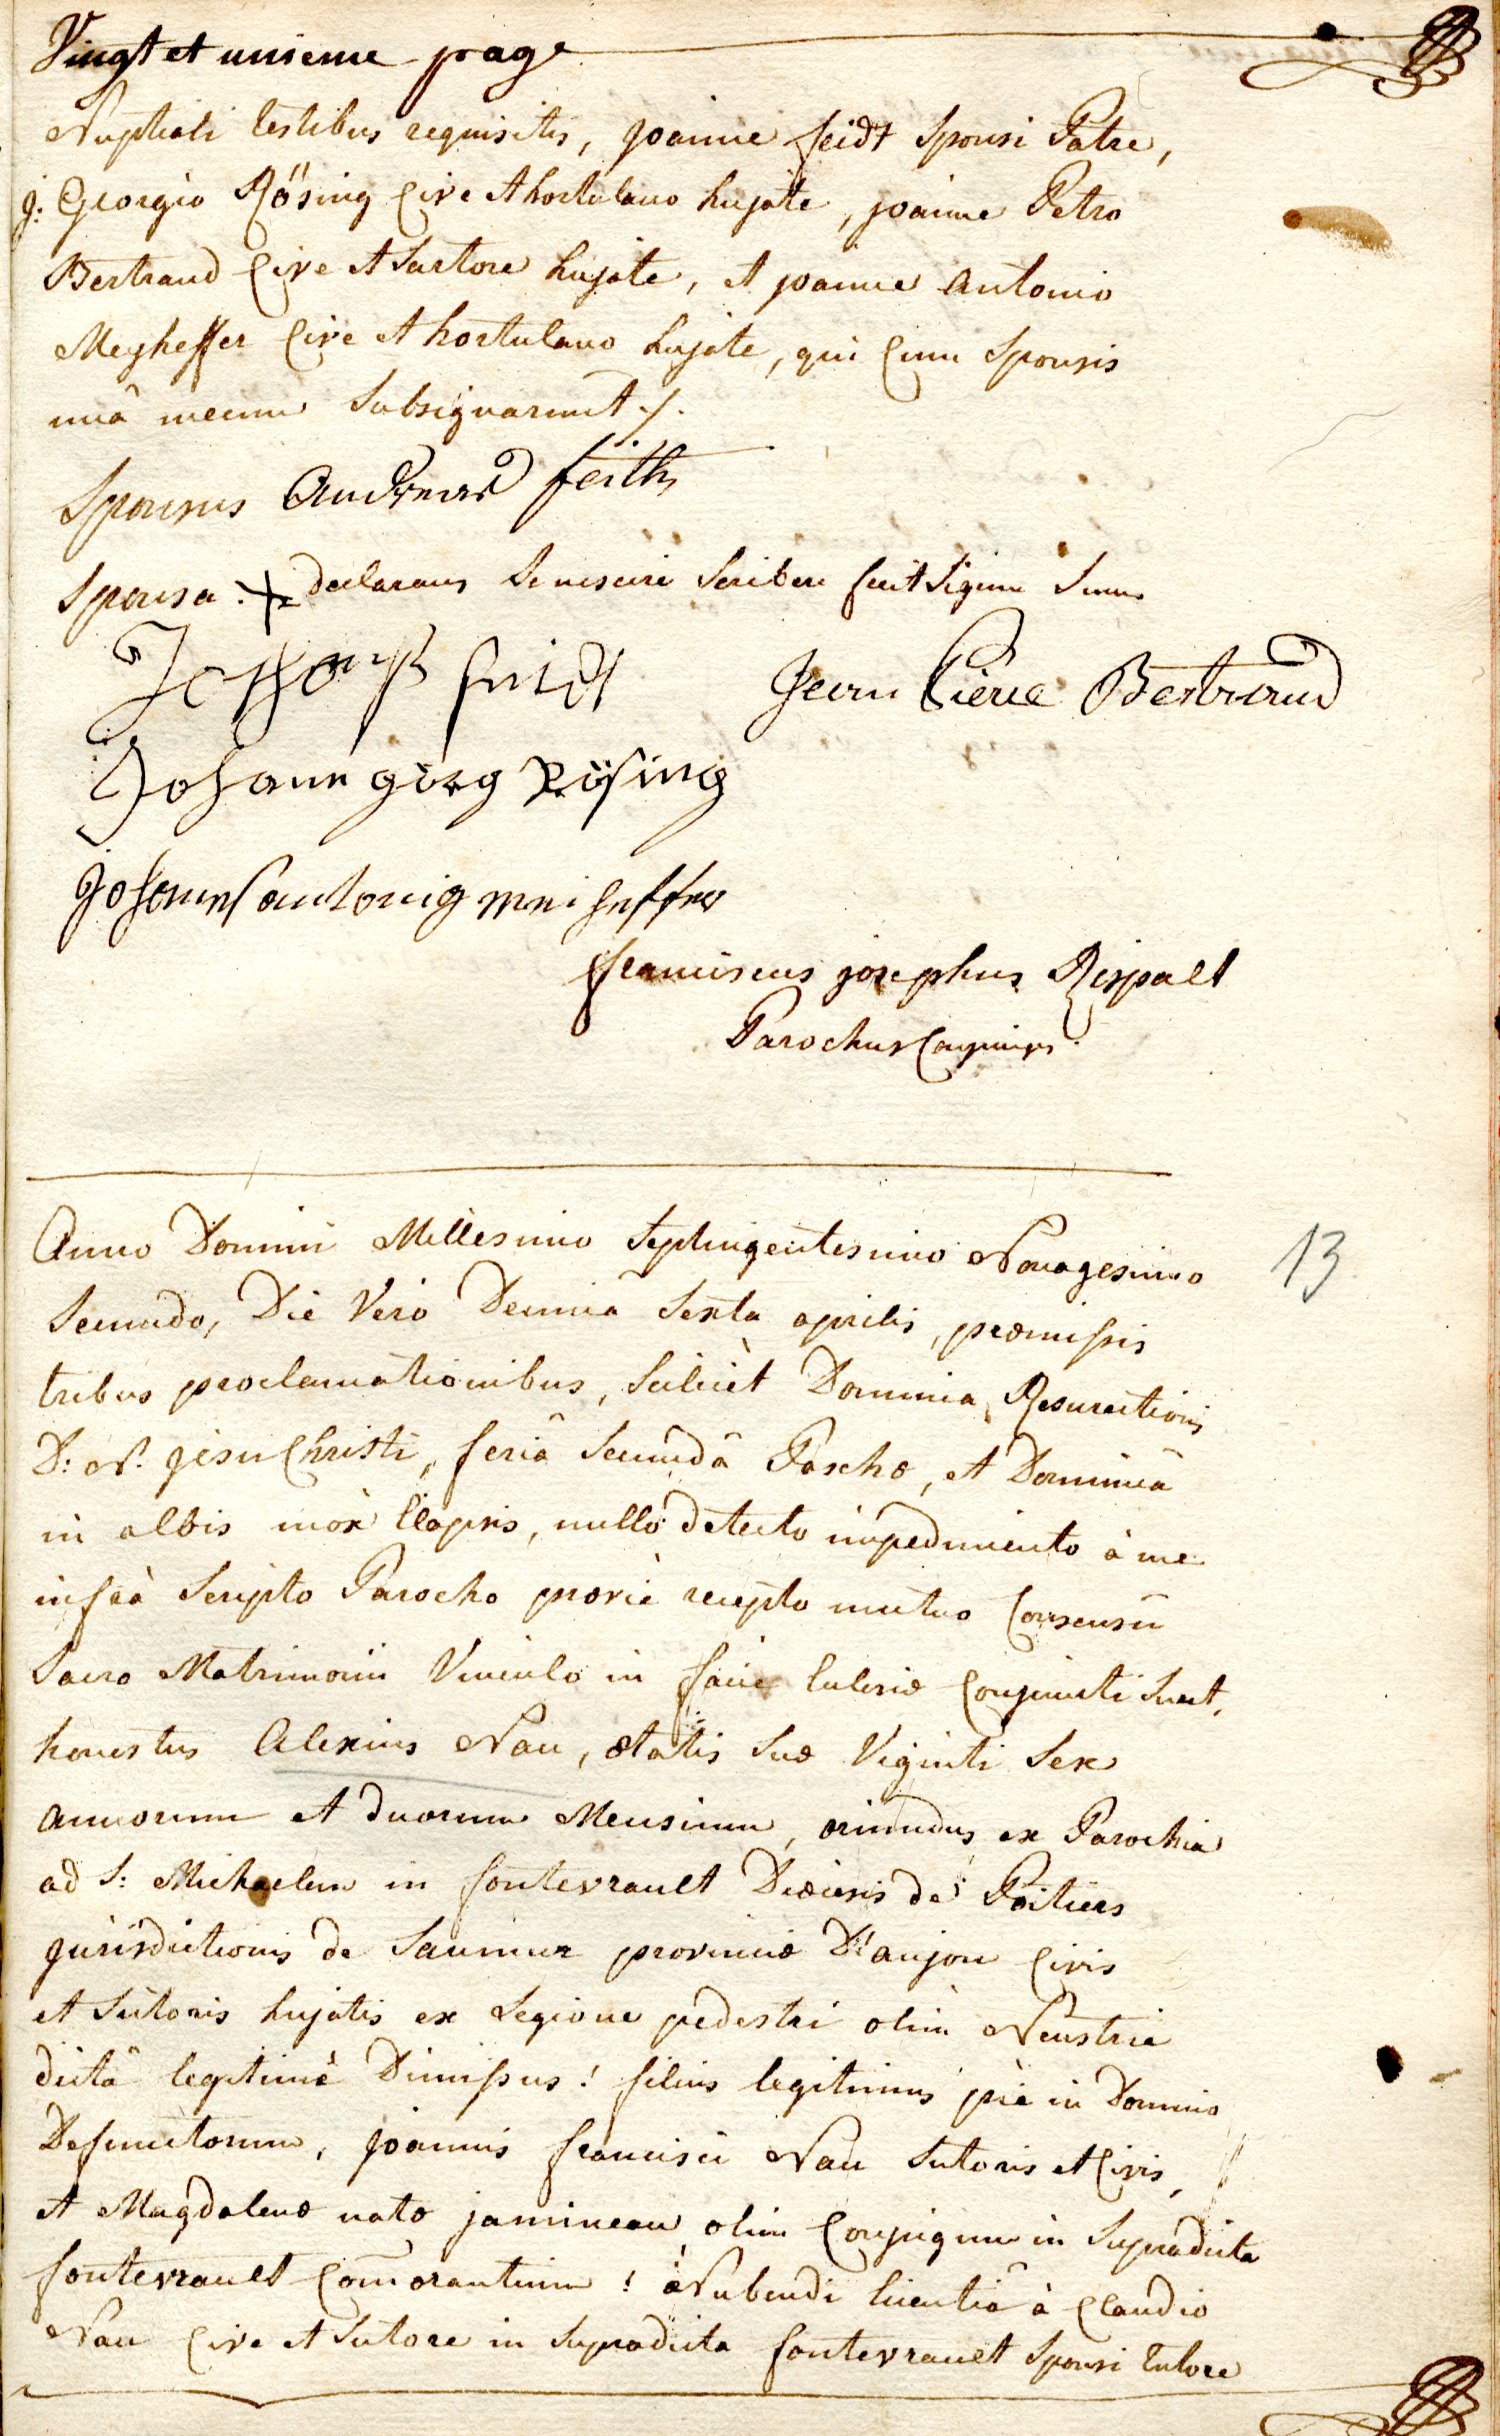 Vingt et unieme page
Nuptiali testibus requisitis, joanne feidt Sponsi Patre,
j: Georgio Rösing Cive et hortulano hujate, joanne Petro
Bertrand Cive et Sartore hujate, et joanne Antonio
Meyheffer Cive et hortulano hujate, qui Cum Sponsis
unâ mecum Subsignarunt ./.
Sponsus Andreas feith
Sponsa + declarans Se nescire Scribere fecit Signum Suum
feidt Jean Pierre Bertrand
Johann görg Rösing
Johannes antonig meiheffer
franciscus josephus Rispalt
Parochus
Anno Domini Millesimo Septingentesimo Nonagesimo 13
Secundo, Die Vero Decima Sexta aprilis, præmissis
tribus proclamationibus, Scilicèt Dominica Resurectionis
D: N: jesu Christi, feriâ Secundâ Paschæ, et Dominicâ
in albis mox Elapsis, nullo detecto impedimento à me
infrà Scripto Parocho præviè recepto mutuo Consensu
Sacro Matrimonii Vinculo in facie Eclesiæ Conjuncti Sunt,
honestus Alexius Nau, ætatis Suæ Viginti Sex
annorum et duorum Mensium, oriundus ex Parochia
ad S: Michaelem in fontevrault Diœcesis de Poitiers
jurisdictionis de Saumur provinciæ D'anjou Civis
et Sutoris hujatis ex Legione pedestri olim Neustrie
dictâ legitimè Dimissus! filius legitimus piè in Domino
Defunctorum, joannis francisci Nau Sutoris et Civis,
et Magdalenæ natæ jamineau olim Conjugum in Supradicta
fontevrault Com̄orantium! Nubendi licentiâ à Claudio
Nau Cive et Sutore in Supradicta fontevrault Sponsi Tutore